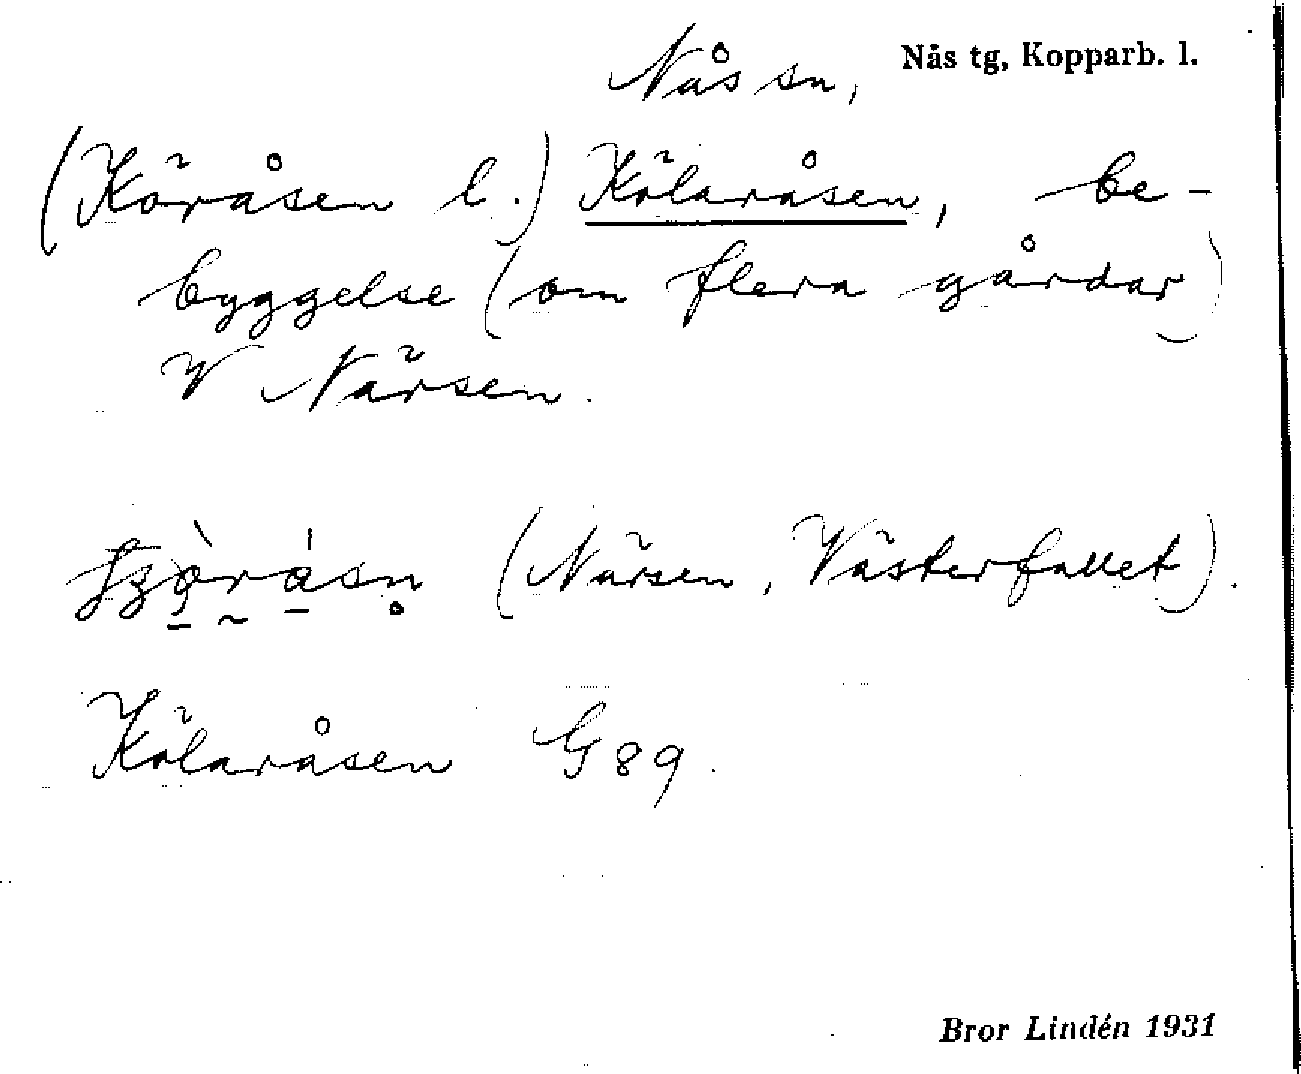 Nås sn, Nås tg, Kopparb. l.
(Köråsen l.) Kölaråsen, be-
byggelse (om flera gårdar)
V Närsen.
(Närsen, Västerfallet).
Kölaråsen G 89.
Bror Lindén 1931